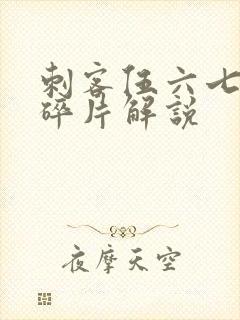 刺客伍六七
碎片解說
夜摩天空